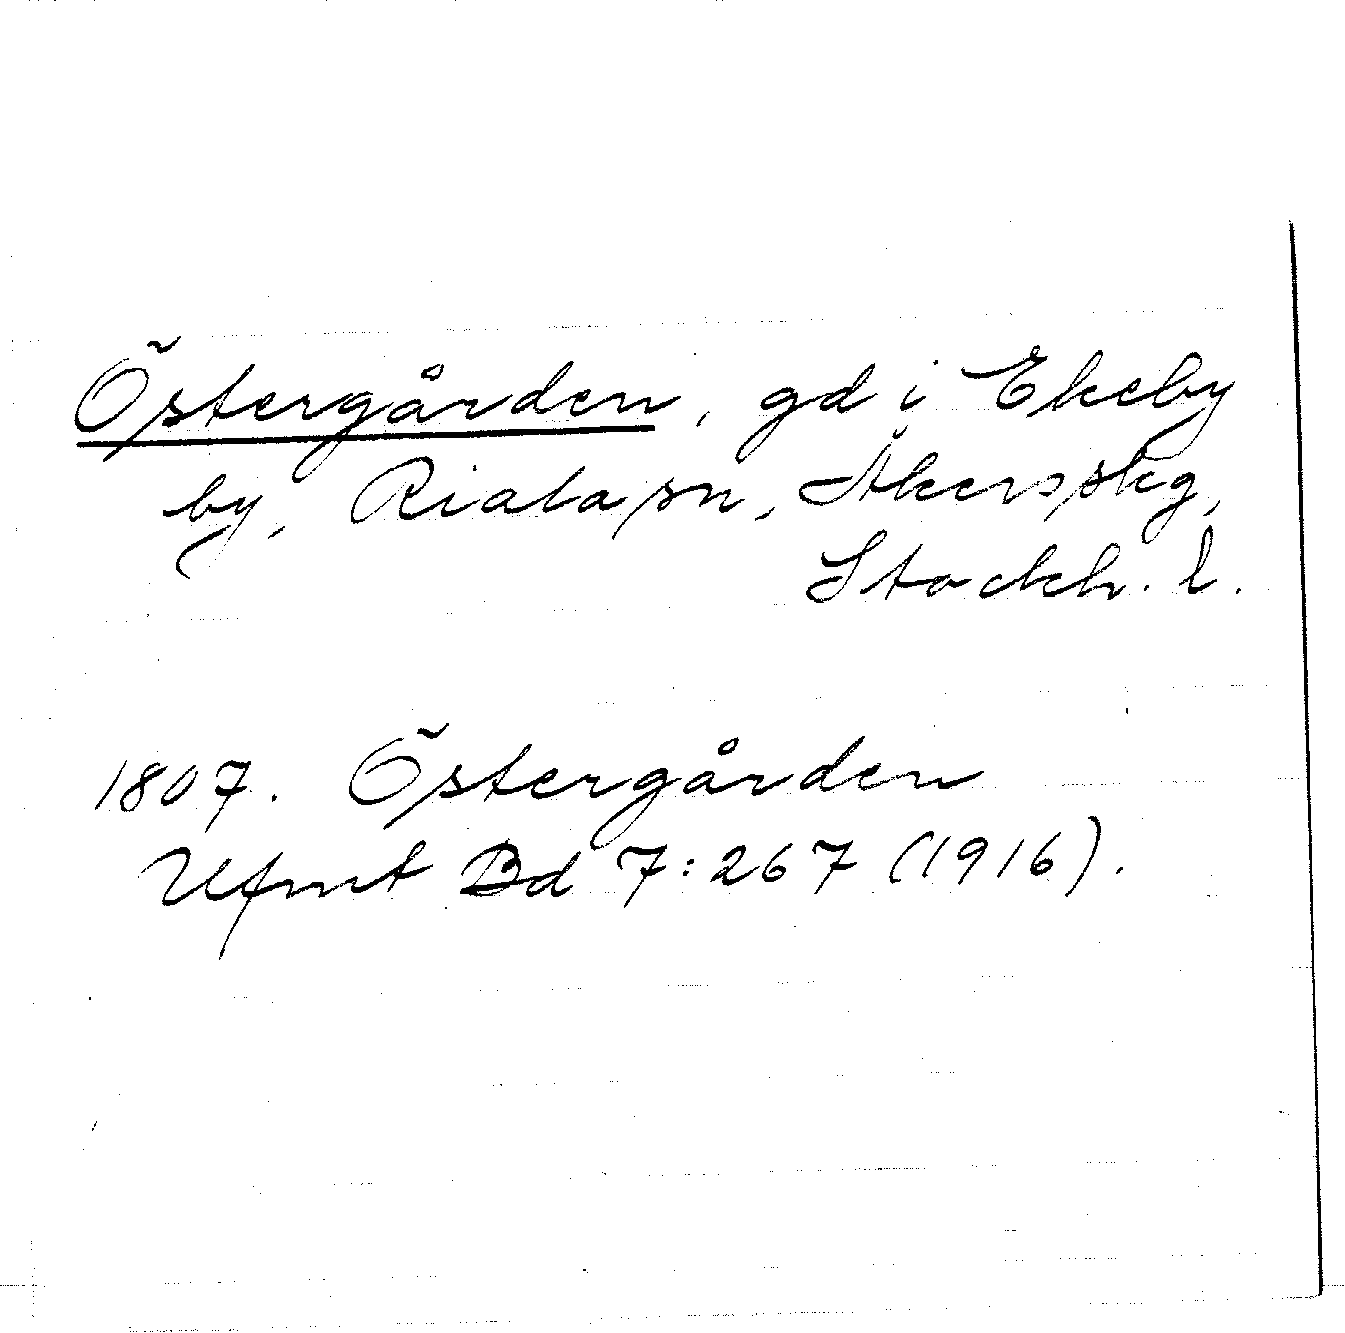 Östergården, gd i Ekeby
by, Riala sn, Åkers skg,
Stockh. l.
1807. Östergården
Ufmt Bd 7:267 (1916).